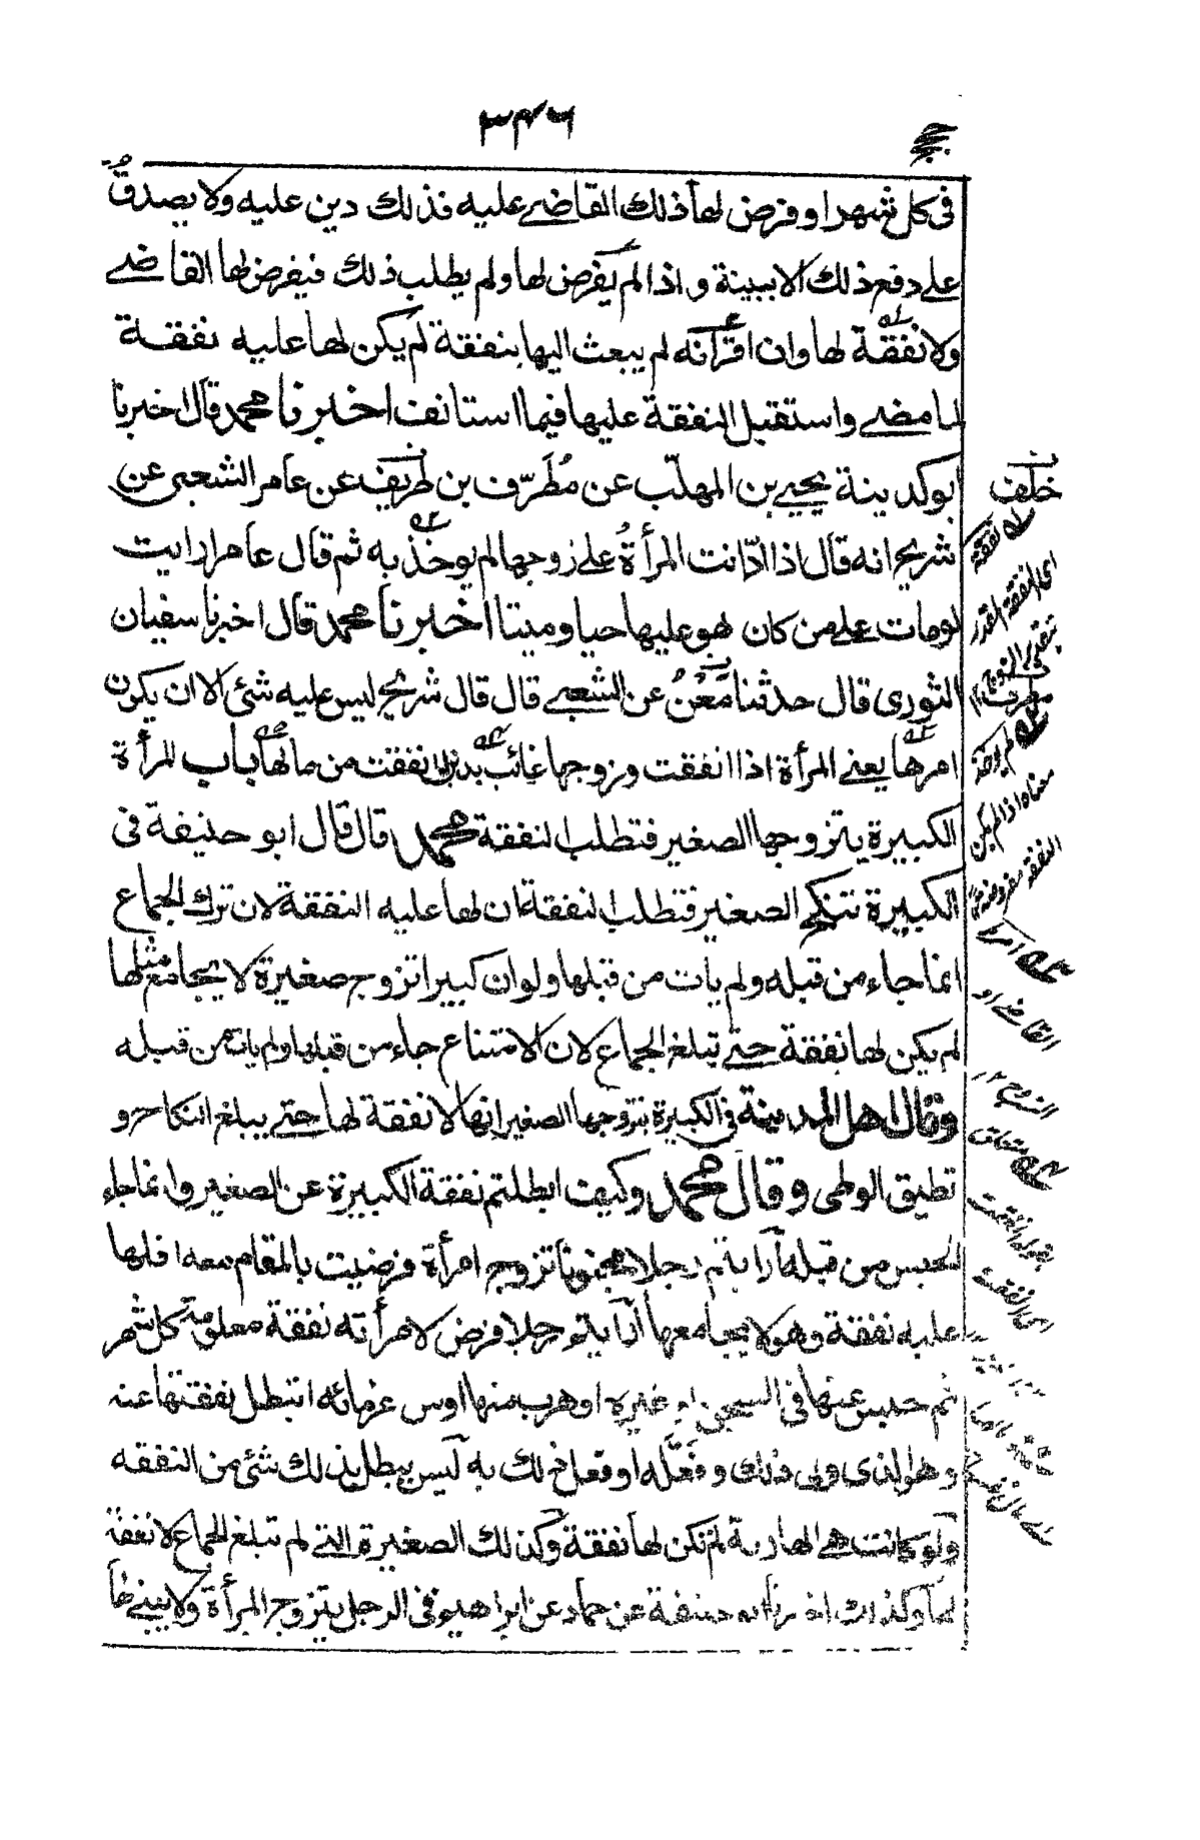 ٣٤٦
فى كل شهر او فرض لها ذلك القاضے عليه فذلك دين عليه ولا يصدق
علے دفع ذلك الا ببينة واذا لم يفرض لها ولم يطلب ذلك فيفرض لها القاضے
ولا نفقة لها وان اقر انه لم يبعث اليها بنفقة لم يكن لها عليه نفقة
لما مضے واستقبل النفقة عليها فيما استانف اخبرنا محمد قال اخبرنا
ابو كدينة يحيے بن المهلّب عن مُطَرّف بن طريف عن عامر الشعبى عن
شريح انه قال اذا ادّانت المرأةُ علے زوجها لم يوخذ به ثم قال عامر ارايت
لو مات علے من كان لهو عليها حيا وميتا اخبرنا محمد قال اخبرنا سفيان
الثورى قال حدثنا مَعْنٌ عن الشعبے قال قال شريح ليس عليه شئ الا ان يكون
امرها يعنے المرأة اذا انفقت وزوجها غائب بدين انفقت من مالها باب المرأة
الكبيرة يتزوجها الصغير فتطلب النفقة محمد قال قال ابو حنيفة فى
الكبيرة تنكح الصغير فتطلب النفقة ان لها عليه النفقة لان ترك الجماع
انما جاء من قبله ولم يأت من قبلها ولو ان كبيرا تزوج صغيرة لا يجامع مثلها
لم يكن لها نفقة حتے تبلغ الجماع لان الامتناع جاء من قبلها ولم يات من قبله
وقال اهل المدينة فى الكبيرة يتزوجها الصغير انها لا نفقة لها حتے يبلغ النكاح و
تطيق الوطى وقال محمد وكيف ابطلتم نفقة الكبيرة عن الصغير وانما جاء
الحبس من قبله أرايتم رجلا مجنونا تزوج امرأة فرضيت بالمقام معه افلها
عليه نفقة وهو لا يجامعها أرأيتم رجلا فرض لامرأته نفقة معلومة كل شهر
ثم حبس عنها فى السجن او غيره او هرب منها او من غرمائه اتبطل نفقتها عنه
وهو الذى ولى ذلك وفَعَلَه او فعل ذلك به ليس يبطل بذلك شئ من النفقه
ولو كانت هے الهاربة لم تكن لها نفقة وكذلك الصغيرة التے لم تبلغ الجماع لا نفقة
لها وكذلك اخبرنا ابو حنيفة عن حماد عن ابراهيم فى الرجل يتزوج المرأة ولا يبنے لها
خلف
له نفقة
اى النفقة القدر
لم يوخذ
معناه اذا لم يكن
النفقة مفروضة
القاضے او
الزوج ١٢
متعلق
بقوله انفقت
اى انفقت